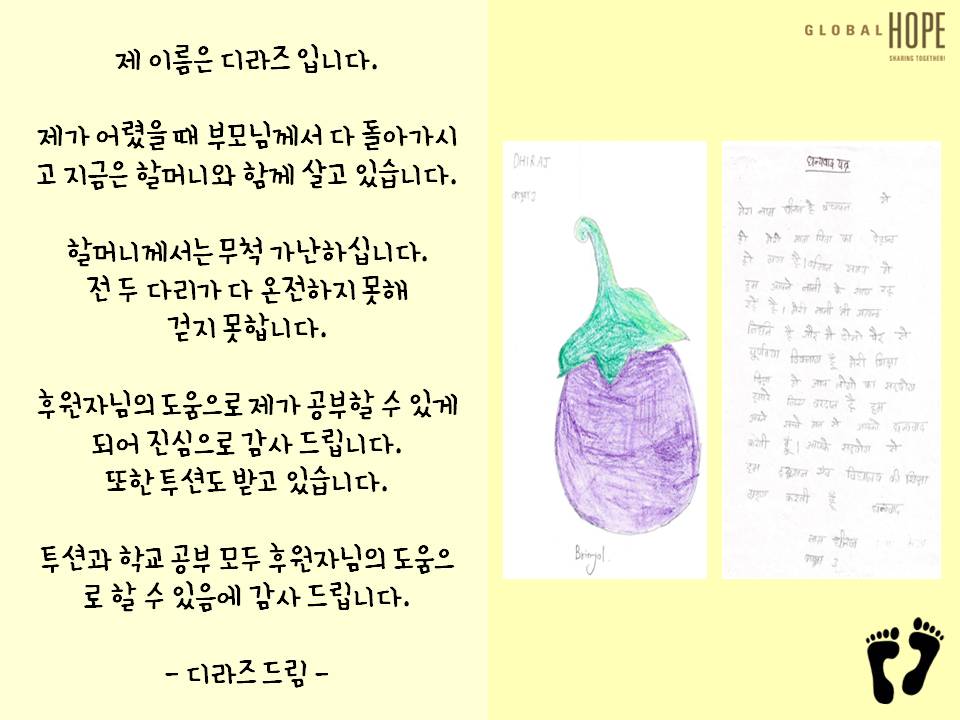 제 이름은 디라즈 입니다.
제가 어렸을 때 부모님께서 다 돌아가시
고 지금은 할머니와 함께 살고 있습니다.
할머니께서는 무척 가난하십니다.
전 두 다리가 다 온전하지 못해
걷지 못합니다.
후원자님의 도움으로 제가 공부할 수 있게
되어 진심으로 감사 드립니다.
또한 투션도 받고 있습니다.
투션과 학교 공부 모두 후원자님의 도움으
로 할 수 있음에 감사 드립니다.
- 디라즈 드림 -
GLOBAL HOPE
SHARING TOGETHER!
DHIRAJ
कक्षा 3
Brinjol
धन्यवाद पत्र
मेरा नाम है में
ही मेरी माता पिता का
हो गया है। समय में
हम अपने नानी के साथ रह
रहे है। मेरी नानी भी
है और मै दोनो पैर से
विकलांग हूँ मेरी शिक्षा
में आप लोगो का सहयोग
है हम
अपने मन से आपको धन्यवाद
करती हूँ। आपके सहयोग से
हम विद्यालय की शिक्षा
ग्रहण करती हूँ
धन्यवाद
नाम
कक्षा 3